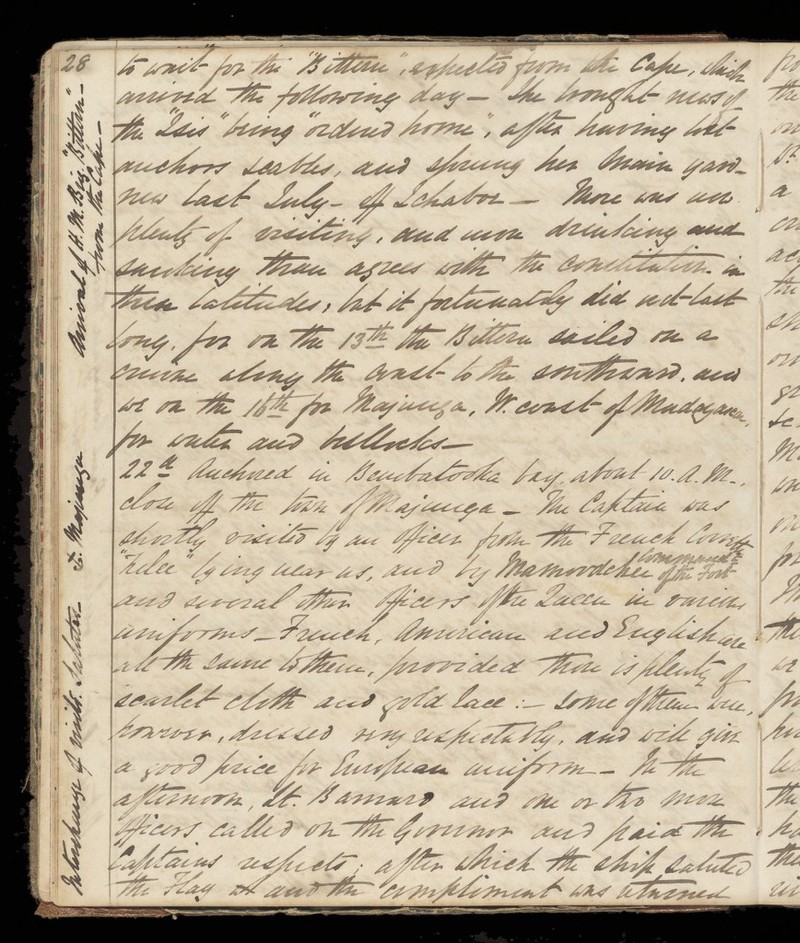 28
to wait for the "Bittern", expected from the Cape, which
arrived the following day - She brought news of
the "Isis" being "ordered home", after having lost
anchors &cables, and sprung her main yard-
new last July - off Ichaboe - There was an
plenty of visiting, and more drinking and
smoking than agrees with the constitution in
these latitudes; but it fortunately did not last
long, for on the 13th the Bittern sailed on a
cruise along the coast to the southward, and
we on the 16th for Majunga, W. coast of Madagascar,
for water and bullocks -
22d Anchored in Bembatooka bay, about 10. A.M.,
close off the town of Majunga - The Captain was
shortly visited by an officer from the French Corvette
lying near us, and by Mamoodchee Commandt
of the Fort
and several other officers of the Queen in various
uniforms - French, American and English are
all the same to them, provided there is plenty of
scarlet cloth and gold lace :- some of them were,
however, dressed very respectably, and will give
a good price for European uniform - In the
afternoon, Lt. Barnard and one or two more
officers called on the Governor and paid the
Captains respects; after which the ship saluted
the Flag and the compliment was returned
Arrival of H.M. Brig "Bittern"-
from the Cape -
Interchange of visits. Salutes - &c. Majunga